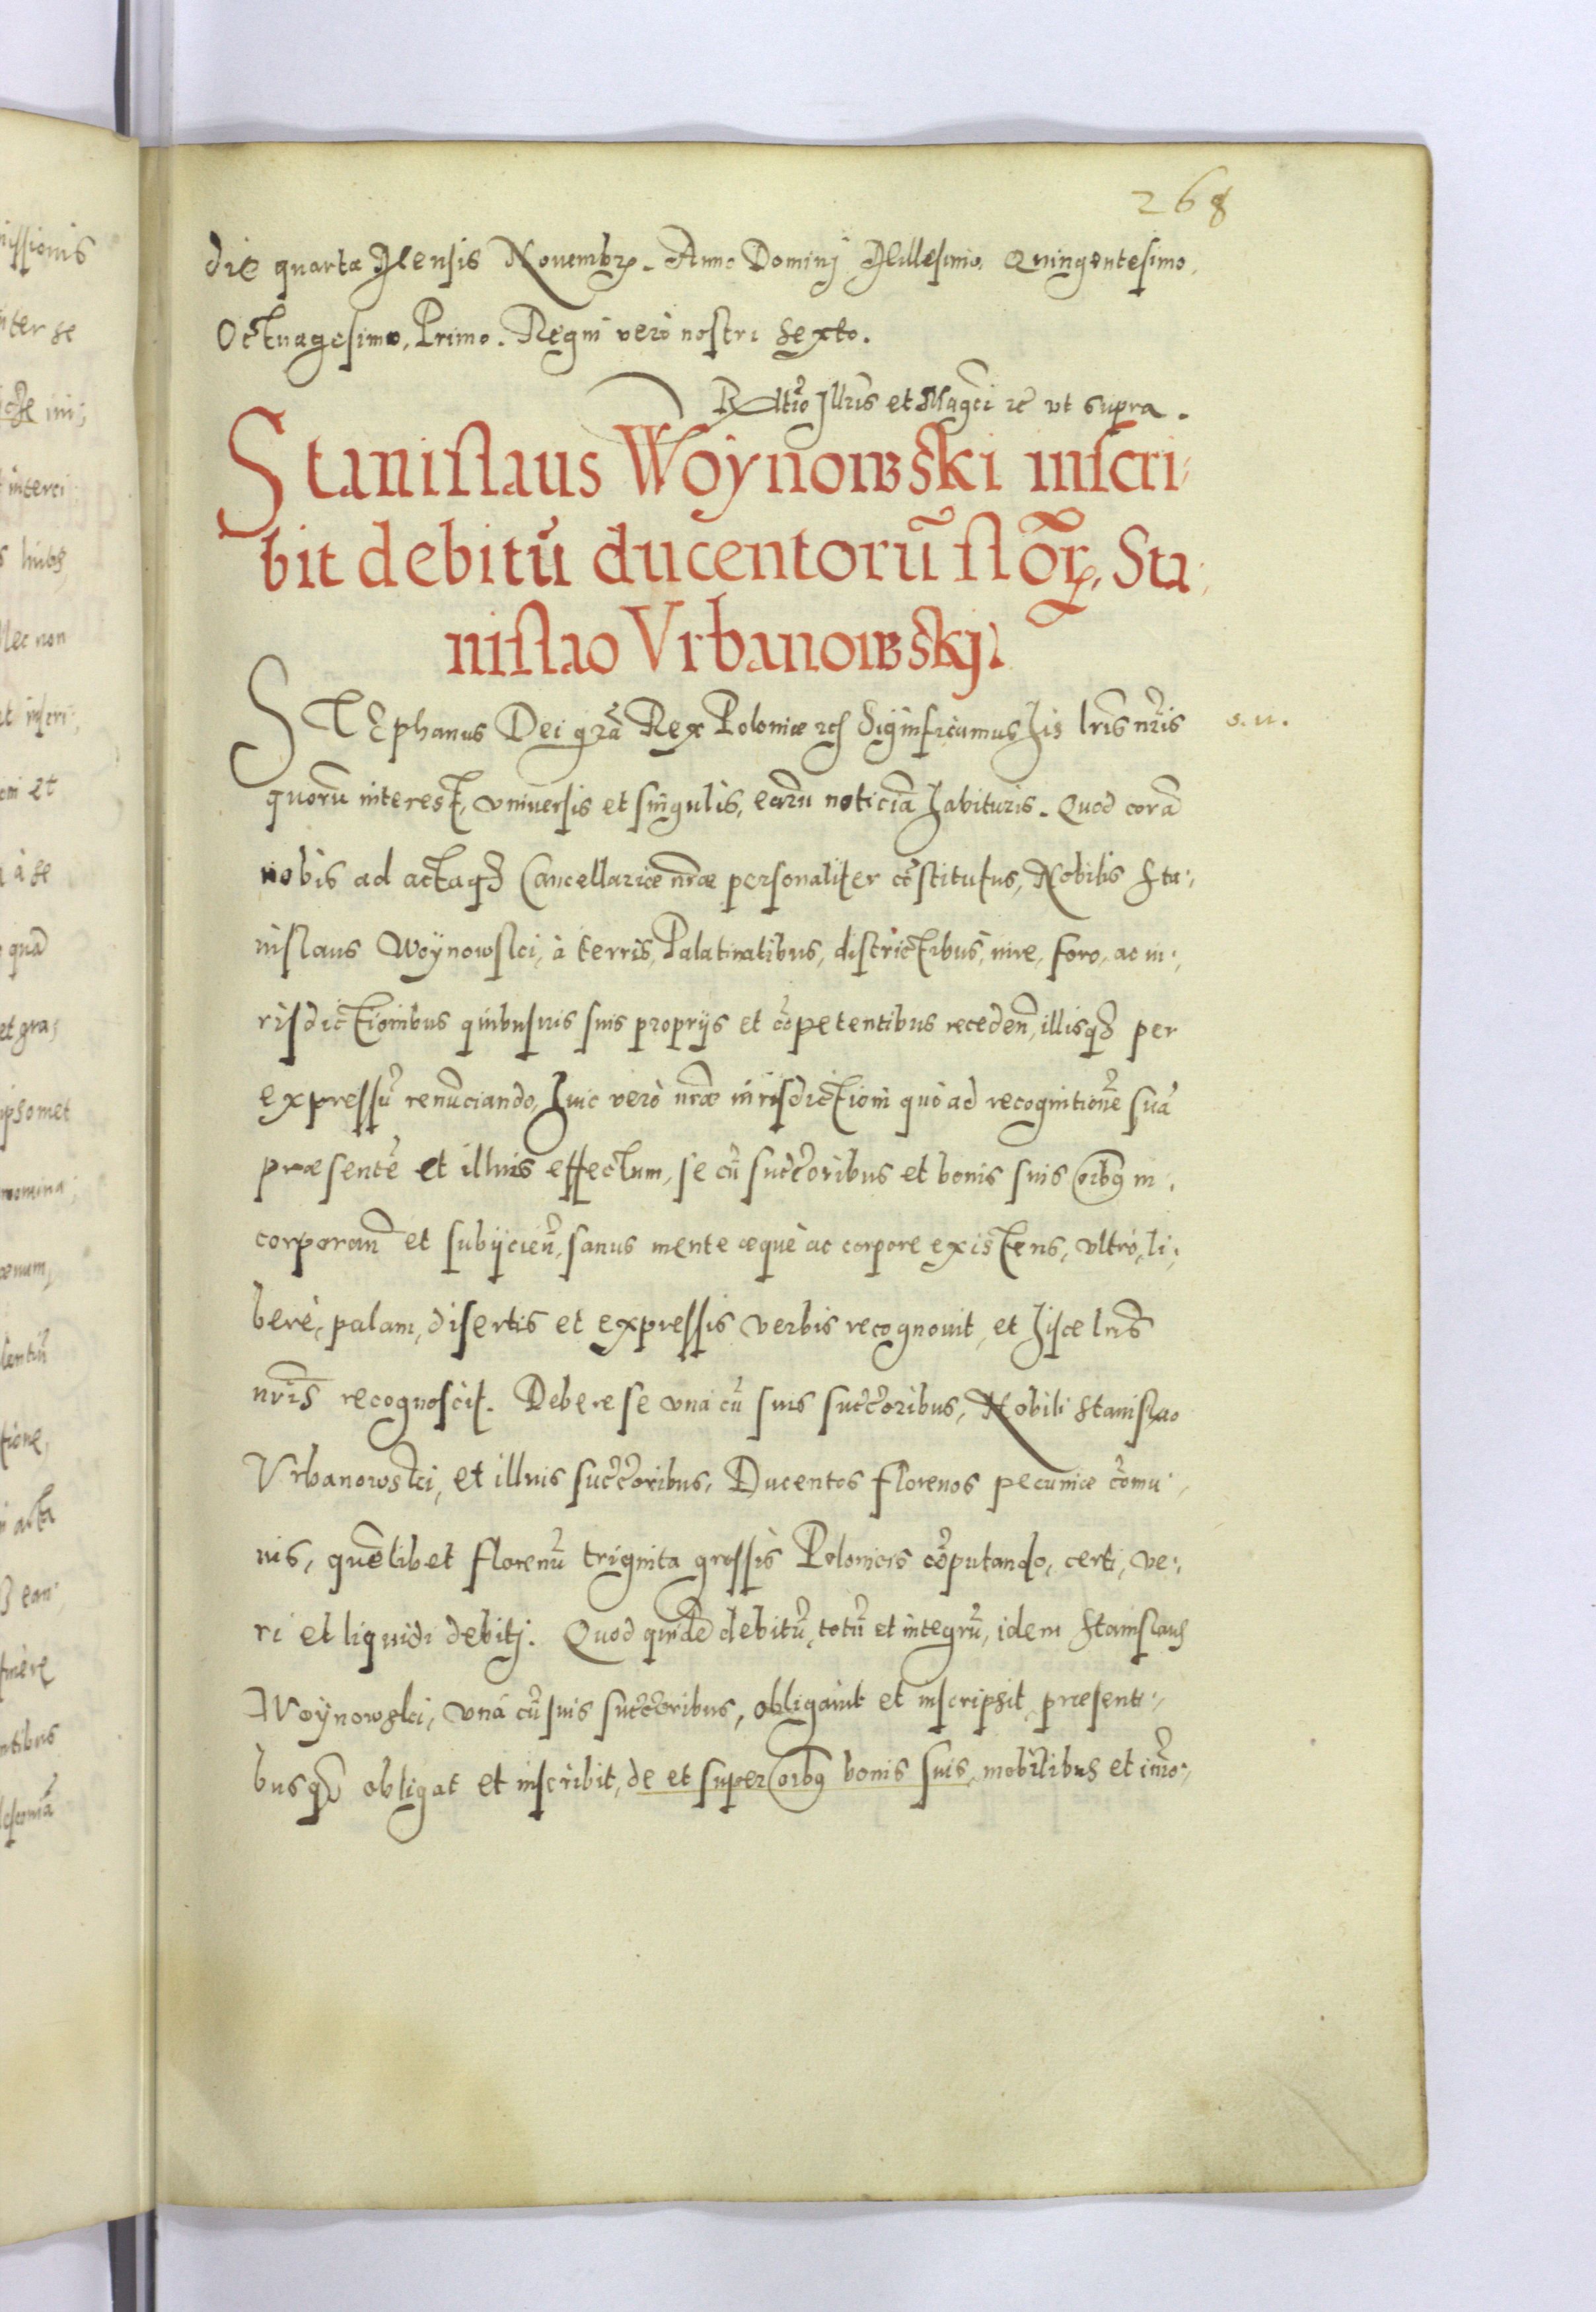 268
die quarta Mensis Novembr. Anno Dominj Millesimo, Quingentesimo,
Octuagesimo, Primo. Regni verò nostri Sexto.
Rltio Jllris et Magci rc ut supra.
Stanislaus Woynowski inscri,
bit debitũ ducentorũ flor. Sta,
nislao Vrbanowskj.
STEphanus Dei gra Rex Poloniæ rc Significamus his lris nris
s. n.
quorũ interest, vniuersis et singulis, earũ noticiã habituris. Quod corã
nobis ad actaq3 Cancellariæ nræ personaliter cõstitutus, Nobilis Sta,
nislaus Woÿnowski, à terris, Palatinatibus, districtibus, iure, foro, ac iu,
risdictionibus quibusuis suis proprijs et cõpetentibus receden, illisq3 per
expressũ renũciando, huic verò nræ iurisdictioni quò ad recognitionẽ suã
præsentẽ et illius effectum, se cũ succoribus et bonis suis oibq in,
corporan et subijcien, sanus mente æquè ac corpore existens, vltrò, li,
berè, palam, disertis et expressis verbis recognouit, et hisce lris
nris recognoscit. Debere se vnà cũ suis succoribus, Nobili Stanislao
Vrbanowski, et illius succoribus, Ducentos florenos pecuniæ cõmu,
nis, quẽlibet florenũ triginta grossis Polonicis cõputando, certi, ve,
ri et liquidi debitj. Quod quidẽ debitũ, totũ et integrũ, idem Stanislaus
Woÿnowski, vnà cũ suis succoribus, obligauit et inscripsit, præsenti,
busq3 obligat et inscribit, de et super oibq bonis suis, mobilibus et im̃o,